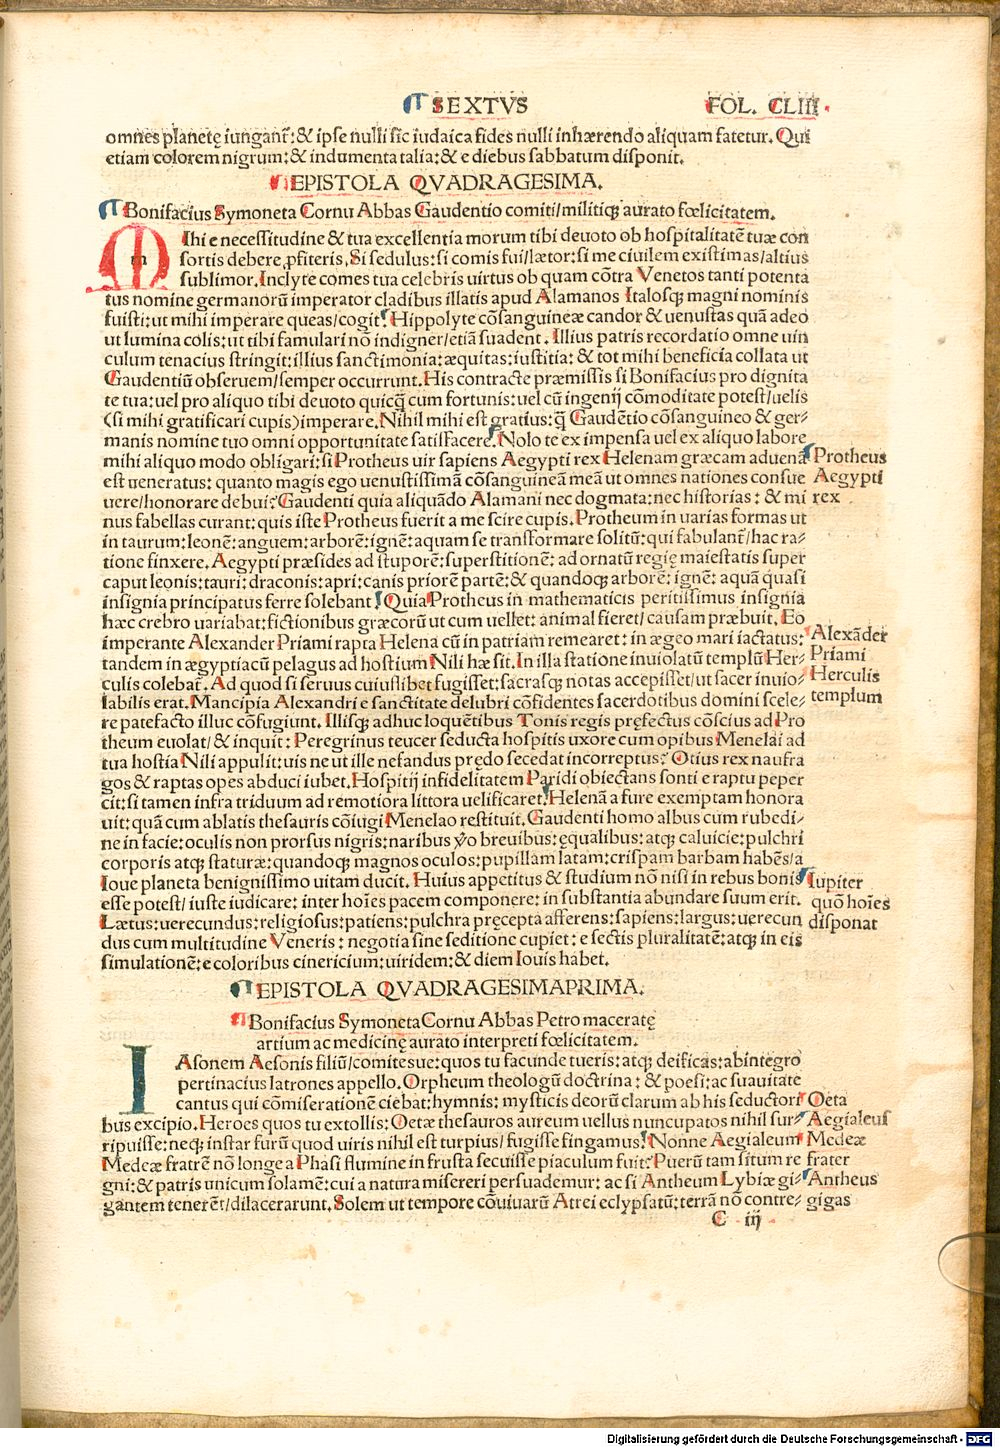 SEXTVS FOL. CLIII
omnes planetę iungant̃:& ipse nulli sic iudaica fides nulli inhærendo aliquam fatetur. Qui
etiam colorem nigrum:& indumenta talia:& e diebus sabbatum disponit.
EPISTOLA QVADRAGESIMA.
Bonifacius Symoneta Cornu Abbas Gaudentio comiti/militiqꝫ aurato fœlicitatem.
MIhi e necessitudine & tua excellentia morum tibi deuoto ob hospitalitatē tuæ con
sortis debere ꝓfiteris. Si sedulus:si comis fui/lætor:si me ciuilem existimas/altius
sublimor. Inclyte comes tua celebris uirtus ob quam cōtra Venetos tanti potenta
tus nomine germanorū imperator cladibus illatis apud Alamanos Italosqꝫ magni nominis
fuisti:ut mihi imperare queas/cogit. Hippolyte cōsanguineæ candor & uenustas quā adeo
ut lumina colis:ut tibi famulari nō indigner/etiā suadent. Illius patris recordatio omne uin
culum tenacius stringit:illius sanctimonia:æquitas:iustitia:& tot mihi beneficia collata ut
Gaudentiū obseruem/semper occurrunt. His contracte præmissis si Bonifacius pro dignita
te tua:uel pro aliquo tibi deuoto quicq̄ cum fortunis:uel cū ingenij cōmoditate potest/uelis
(si mihi gratificari cupis)imperare. Nihil mihi est gratius:q̄ Gaudētio cōsanguineo & ger-
manis nomine tuo omni opportunitate satisfacere. Nolo te ex impensa uel ex aliquo labore
mihi aliquo modo obligari:si Protheus uir sapiens Aegypti rex Helenam græcam aduenā
est ueneratus: quanto magis ego uenustissimā cōsanguineā meā ut omnes nationes consue
uere/honorare debui? Gaudenti quia aliquādo Alamani nec dogmata:nec historias: & mi
nus fabellas curant: quis iste Protheus fuerit a me scire cupis. Protheum in uarias formas ut
in taurum:leonē:anguem:arborē:ignē:aquam se transformare solitū:qui fabulant̃/hac ra-
tione finxere. Aegypti præsides ad stuporē:superstitionē: ad ornatū regię maiestatis super
caput leonis:tauri:draconis:apri:canis priorē partē:& quandoqꝫ arborē:ignē: aquā quasi
insignia principatus ferre solebant. Quia Protheus in mathematicis peritissimus insignia
hæc crebro uariabat:fictionibus græcorū ut cum uellet: animal fieret/causam præbuit. Eo
imperante Alexander Priami rapta Helena cū in patriam remearet: in ægeo mari iactatus:
tandem in ægyptiacū pelagus ad hostium Nili hæsit. In illa statione inuiolatū templū Her-
culis colebat̃. Ad quod si seruus cuiuslibet fugisset:sacrasqꝫ notas accepisset/ut sacer inuio-
labilis erat. Mancipia Alexandri e sanctitate delubri cōfidentes sacerdotibus domini scele-
re patefacto illuc cōfugiunt. Illisqꝫ adhuc loquētibus Tonis regis pręfectus cōscius ad Pro
theum euolat/ & inquit: Peregrinus teucer seducta hospitis uxore cum opibus Menelai ad
tua hostia Nili appulit:uis ne ut ille nefandus prędo secedat incorreptus? Otius rex naufra
gos & raptas opes abduci iubet. Hospitij infidelitatem Paridi obiectans sonti e raptu peper
cit:si tamen infra triduum ad remotiora littora uelificaret. Helenā a fure exemptam honora
uit: quā cum ablatis thesauris cōiugi Menelao restituit. Gaudenti homo albus cum rubedi-
ne in facie:oculis non prorsus nigris:naribus ꝟo breuibus:ęqualibus:atqꝫ caluicie:pulchri
corporis atqꝫ staturæ:quandoqꝫ magnos oculos:pupillam latam:crispam barbam habēs/a
Ioue planeta benignissimo uitam ducit. Huius appetitus & studium nō nisi in rebus bonis
esse potest/ iuste iudicare: inter hoīes pacem componere: in substantia abundare suum erit.
Lætus:uerecundus:religiosus:patiens:pulchra pręcepta afferens:sapiens:largus:uerecun
dus cum multitudine Veneris: negotia sine seditione cupiet: e sectis pluralitatē:atqꝫ in eis
simulationē:e coloribus cinericium:uiridem:& diem Iouis habet.
Protheus
Aegypti
rex
Alexāder
Priami
Herculis
templum
Iupiter
quō hoīes
disponat
EPISTOLA QVADRAGESIMAPRIMA.
Bonifacius Symoneta Cornu Abbas Petro maceratę
artium ac medicinę aurato interpreti fœlicitatem.
IAsonem Aesonis filiū/comitesue:quos tu facunde tueris:atqꝫ deificas:abintegro
pertinacius latrones appello. Orpheum theologū doctrina: & poesi:ac suauitate
cantus qui cōmiserationē ciebat:hymnis: mysticis deorū clarum ab his seductori
bus excipio. Heroes quos tu extollis: Oetæ thesauros aureum uellus nuncupatos nihil sur-
ripuisse:neqꝫ instar furū quod uiris nihil est turpius/ fugisse fingamus. Nonne Aegialeum
Medeæ fratrē nō longe a Phasi flumine in frusta secuisse piaculum fuit? Puerū tam situm re
gni:& patris unicum solamē:cui a natura misereri persuademur: ac si Antheum Lybiæ gi-
gantem tenerēt̃/dilacerarunt. Solem ut tempore cōuiuarū Atrei eclypsatū:terrā nō contre-
Oeta
Aegialeus
Medeæ
frater
Antheus
gigas
C iij
Digitalisierung gefördert durch die Deutsche Forschungsgemeinschaft - DFG